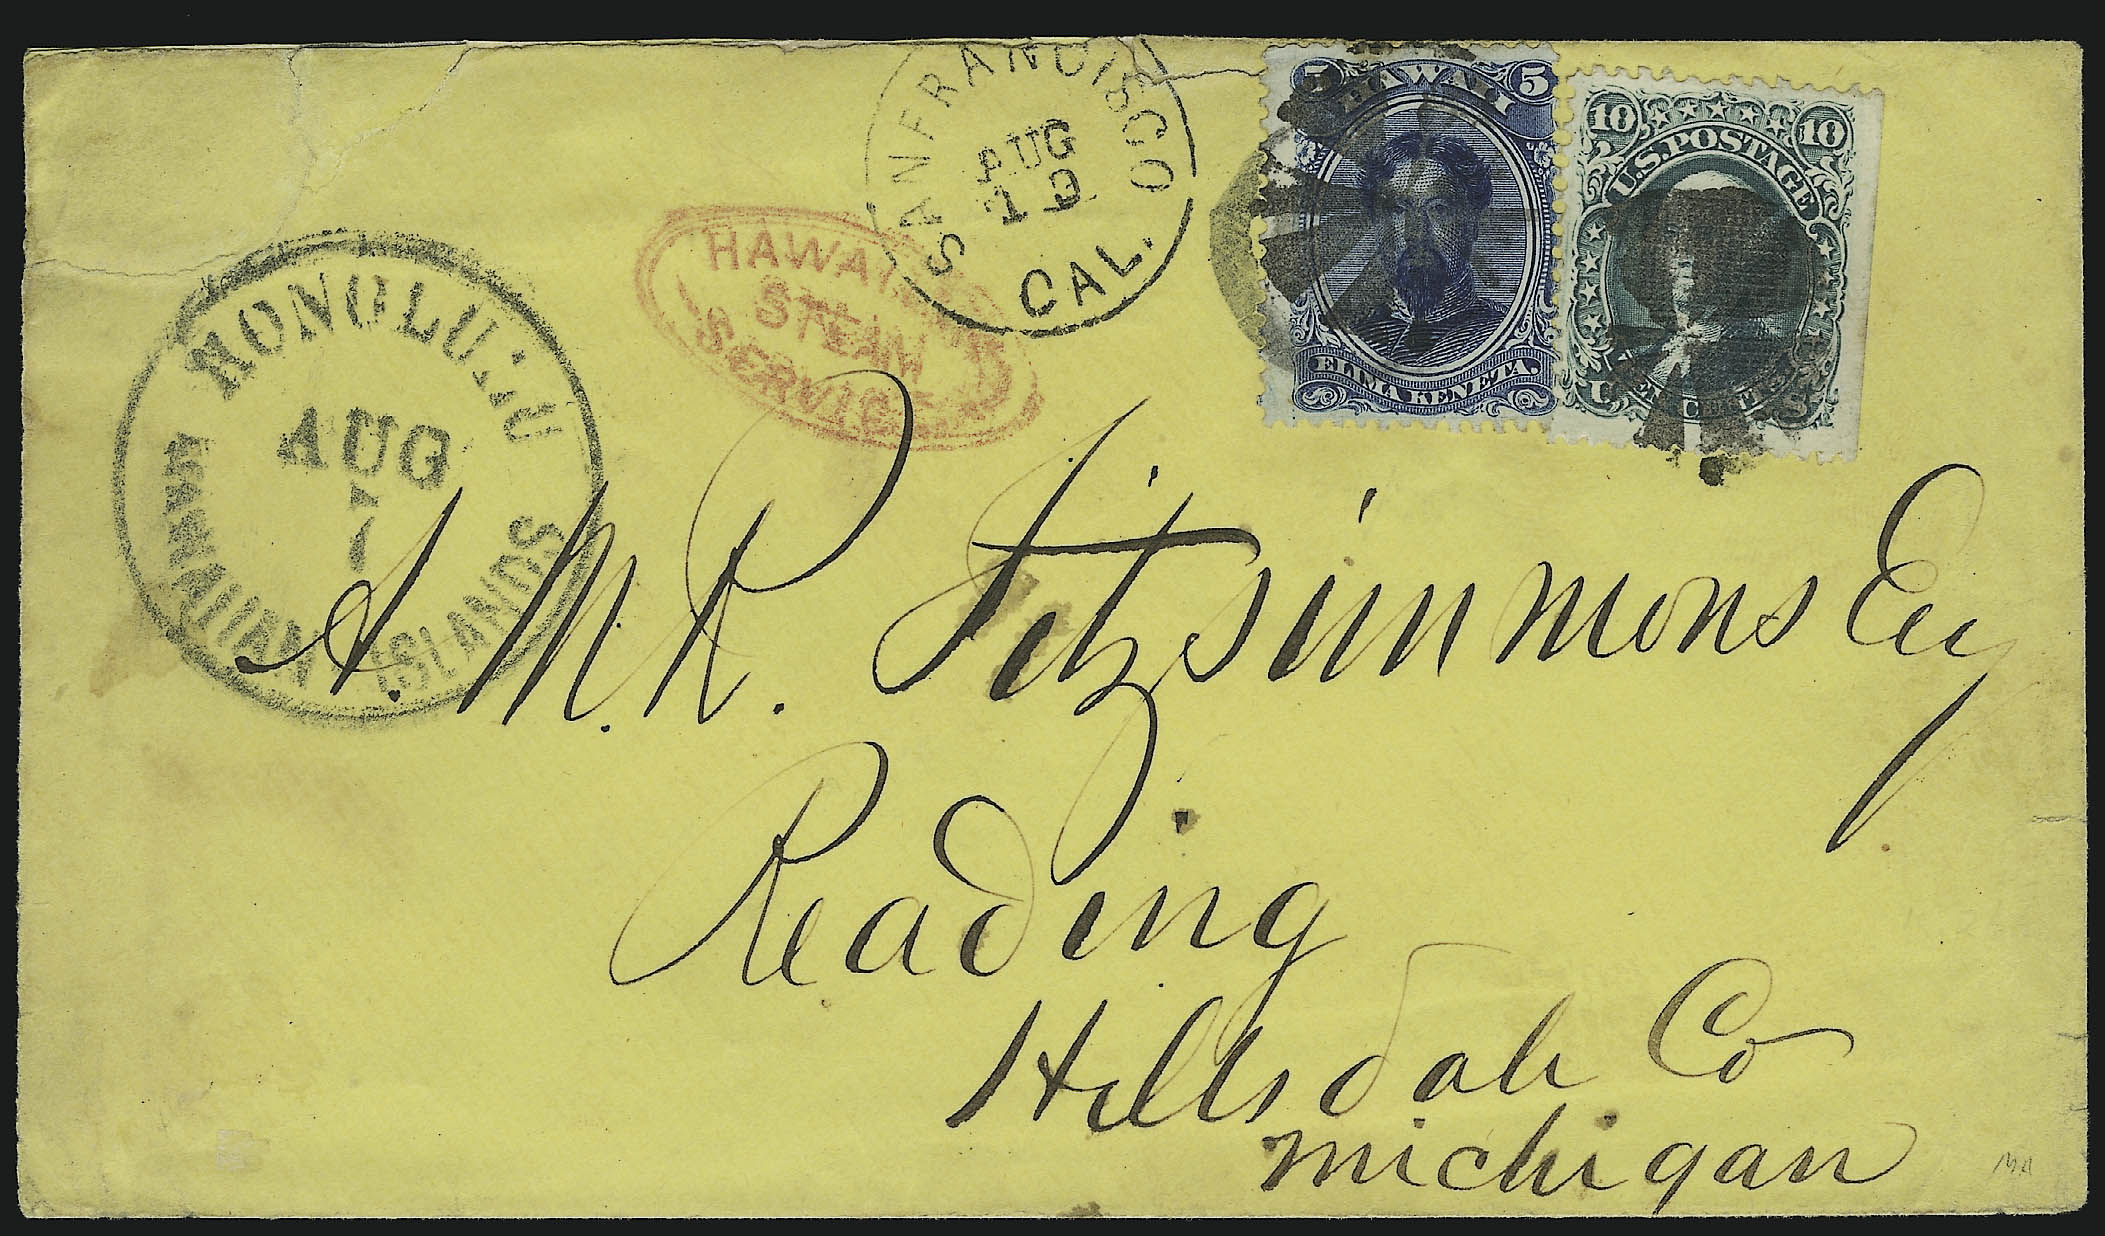 SAN FRANCISCO
AUG
19
CAL.
5 HAWAII 5
ELIMA KENETA.
10 10
U.S. POSTAGE
U S
HONOLULU
AUG
7
HAWAIIAN ISLANDS
HAWAI
STEAM
SERVICE
A. M. R. Fitzsimmons Esq
Reading
Hillsdale Co
Michigan